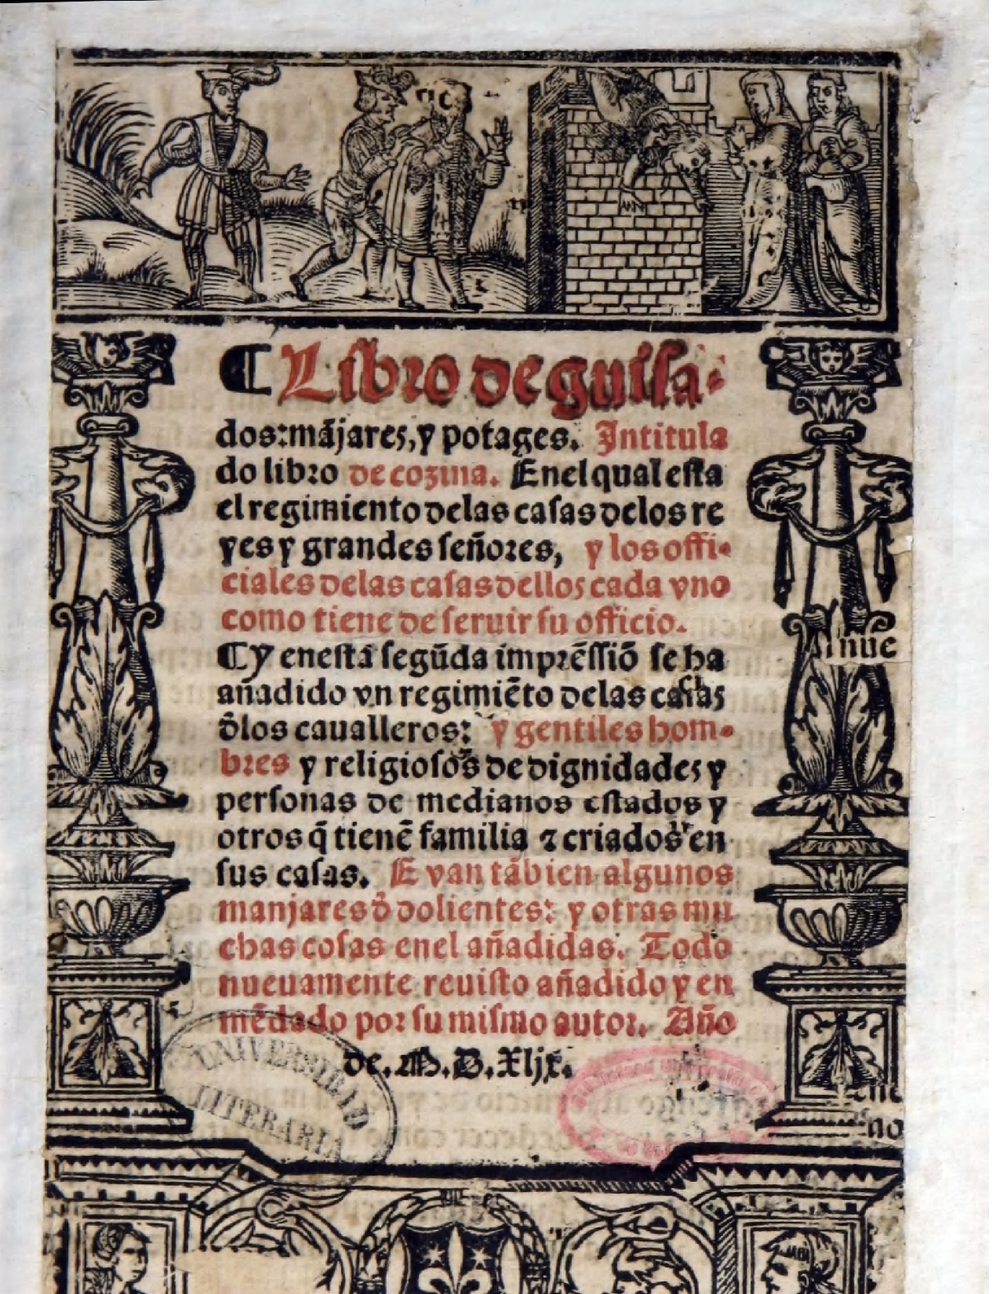 ¶ Libro de guisa-
dos: mājares, y potages. Intitula
do libro de cozina. Enel qual esta
el regimiento delas casas delos re
yes y grandes señores, y los offi-
ciales delas casas dellos cada vno
como tiene de seruir su officio.
¶ Y enesta segūda imprēssiō se ha
añadido vn regimiēto delas casas
đlos caualleros: y gentiles hom-
bres y religiosos de dignidades y
personas de medianos estados y
otros q̄ tienē familia ⁊ criados en
sus casas. E van tābien algunos
manjares đ dolientes: y otras mu
chas cosas enel añadidas. Todo
nueuamente reuisto añadido y en
mēdado por su mismo autor. Año
de. M. D. Xljx.
UNIVERSIDAD
LITERARIA